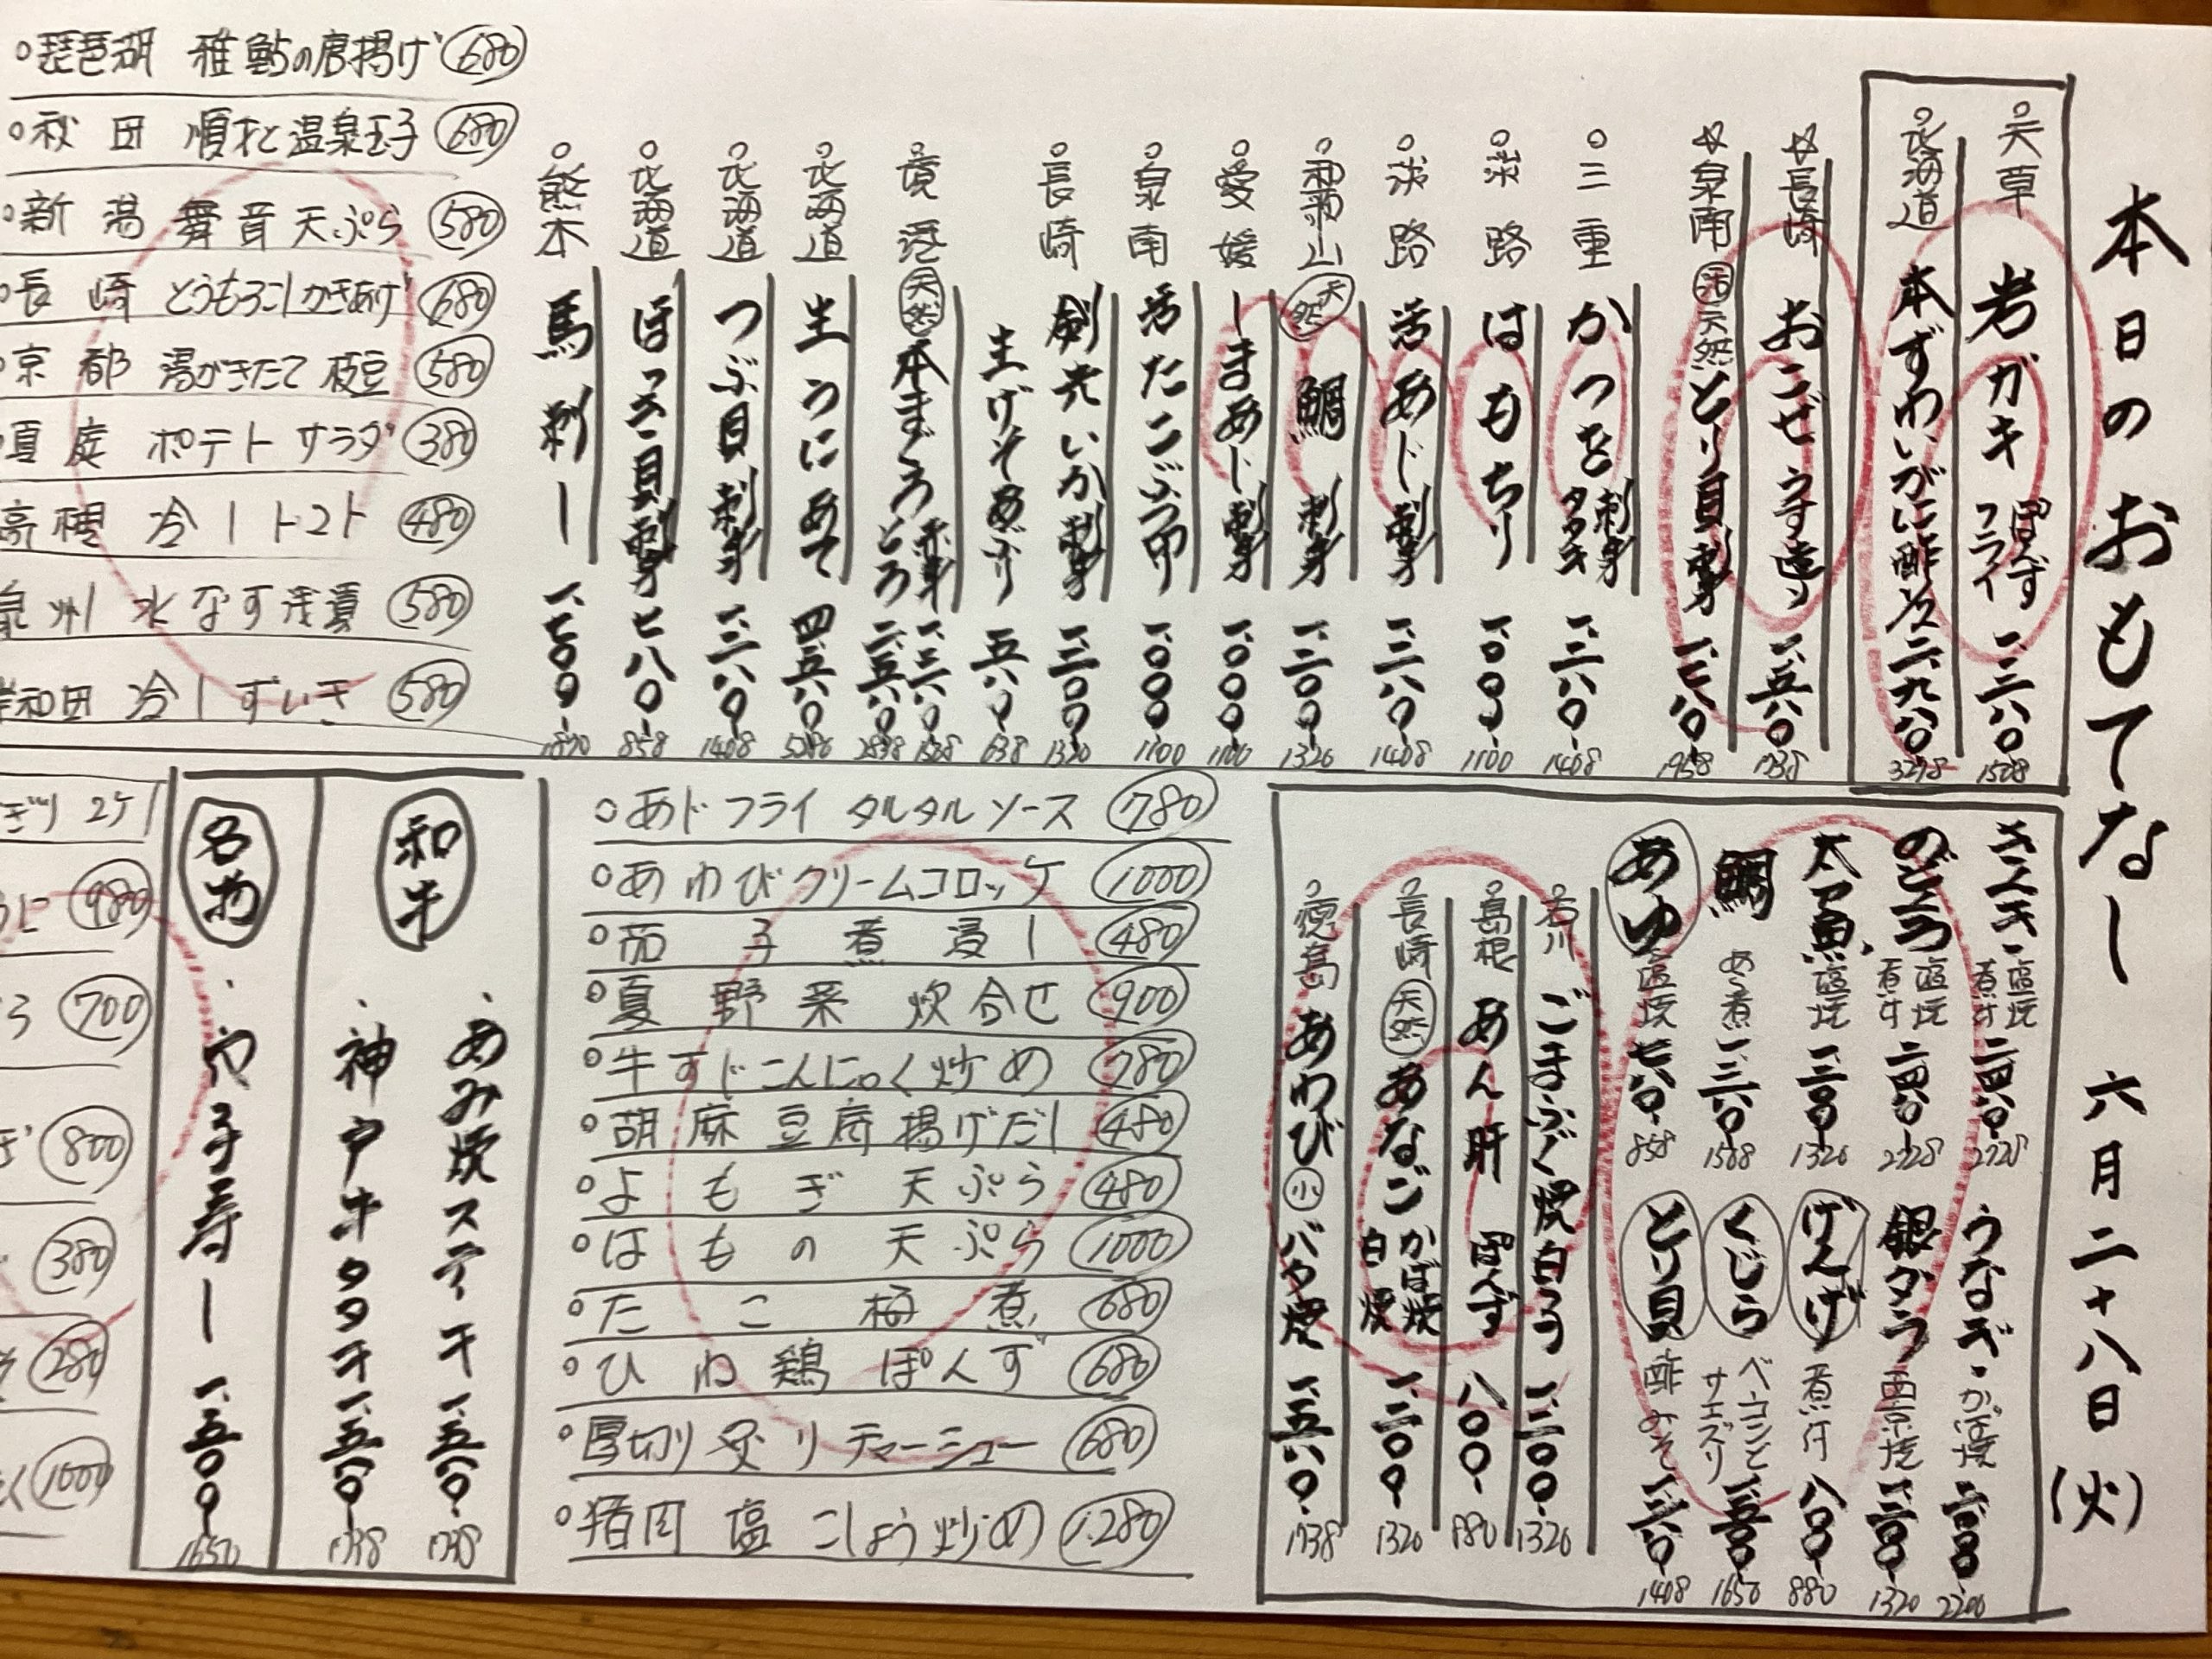 本日のおもてなし 六月二十八日(火)
天草 岩ガキ ぽんず フライ 一、三八〇 1508
北海道 本ずわいがに酢 二、九八〇 3278
☆長崎 おこぜうす造り 一、五八〇 1738
☆泉南 活 天然 とり貝刺身 1958
三重 かつを 刺身 タタキ 一、二八〇 1408
淡路 はもちり 一、〇〇〇 1100
淡路 活あじ刺身 一、二八〇 1408
和歌山 天然 鯛 刺身 一、二〇〇 1320
愛媛 しまあじ刺身 一、〇〇〇 1100
泉南 活たこぶつ切 一、〇〇〇 1100
長崎 剣先いか刺身 一、二〇〇 1320
生げそあぶり 五八〇 638
境港 天然 本まぐろ 赤身 一、三八〇 とろ 二、五八〇 2838
北海道 生うにあて 四、五八〇
北海道 つぶ貝刺身 一、二八〇 1408
北海道 ほっき貝刺身 七八〇 858
熊本 馬刺し 一、七〇〇 1870
琵琶湖 稚鮎の唐揚げ 680
秋田 順才と温泉玉子 680
新潟 舞音天ぷら 580
長崎 とうもろこしかきあげ 680
京都 湯がきたて 枝豆 580
夏庭 ポテトサラダ 380
高槻 冷しトマト 480
泉州 水なす浅漬 580
岸和田 冷しずいき 580
きんき 塩焼 煮付 二、四八〇 2728
のどぐろ 塩焼 煮付 二、四八〇 2728
太刀魚 塩焼 一、二〇〇 1320
鯛 あら煮 一、三八〇 1508
あゆ 塩焼 七八〇 858
うなぎ かば焼 二、〇〇〇 2200
銀ダラ 西京焼 一、二〇〇 1320
げんげ 煮付 八〇〇 880
くじら ベーコンとサエズリ 一、五〇〇 1650
とり貝 酢みそ 一、二八〇 1408
石川 ごまふぐ焼白子 一、二〇〇 1320
島根 あん肝 ぽんず 八〇〇 880
長崎 天然 あなご かば焼 白焼 一、二〇〇 1320
徳島 あわび 小 バター焼 一、五八〇 1738
あじフライ タルタルソース 780
あわびクリームコロッケ 1000
茄子煮浸し 480
夏野菜炊合せ 900
牛すじこんにゃく炒め 780
胡麻豆腐揚げだし 480
よもぎ天ぷら 480
はもの天ぷら 1000
たこ梅煮 680
ひね鶏ぽんず 680
厚切り炙りチャーシュー 680
猪肉 塩こしょう炒め 1.280
和牛
・あみ焼ステーキ 一、五八〇 1738
・神戸牛タタキ 一、五八〇 1738
名物
・や子寿し 一、五〇〇 1650
ぎり 2ケ
980
700
800
380
280
1000